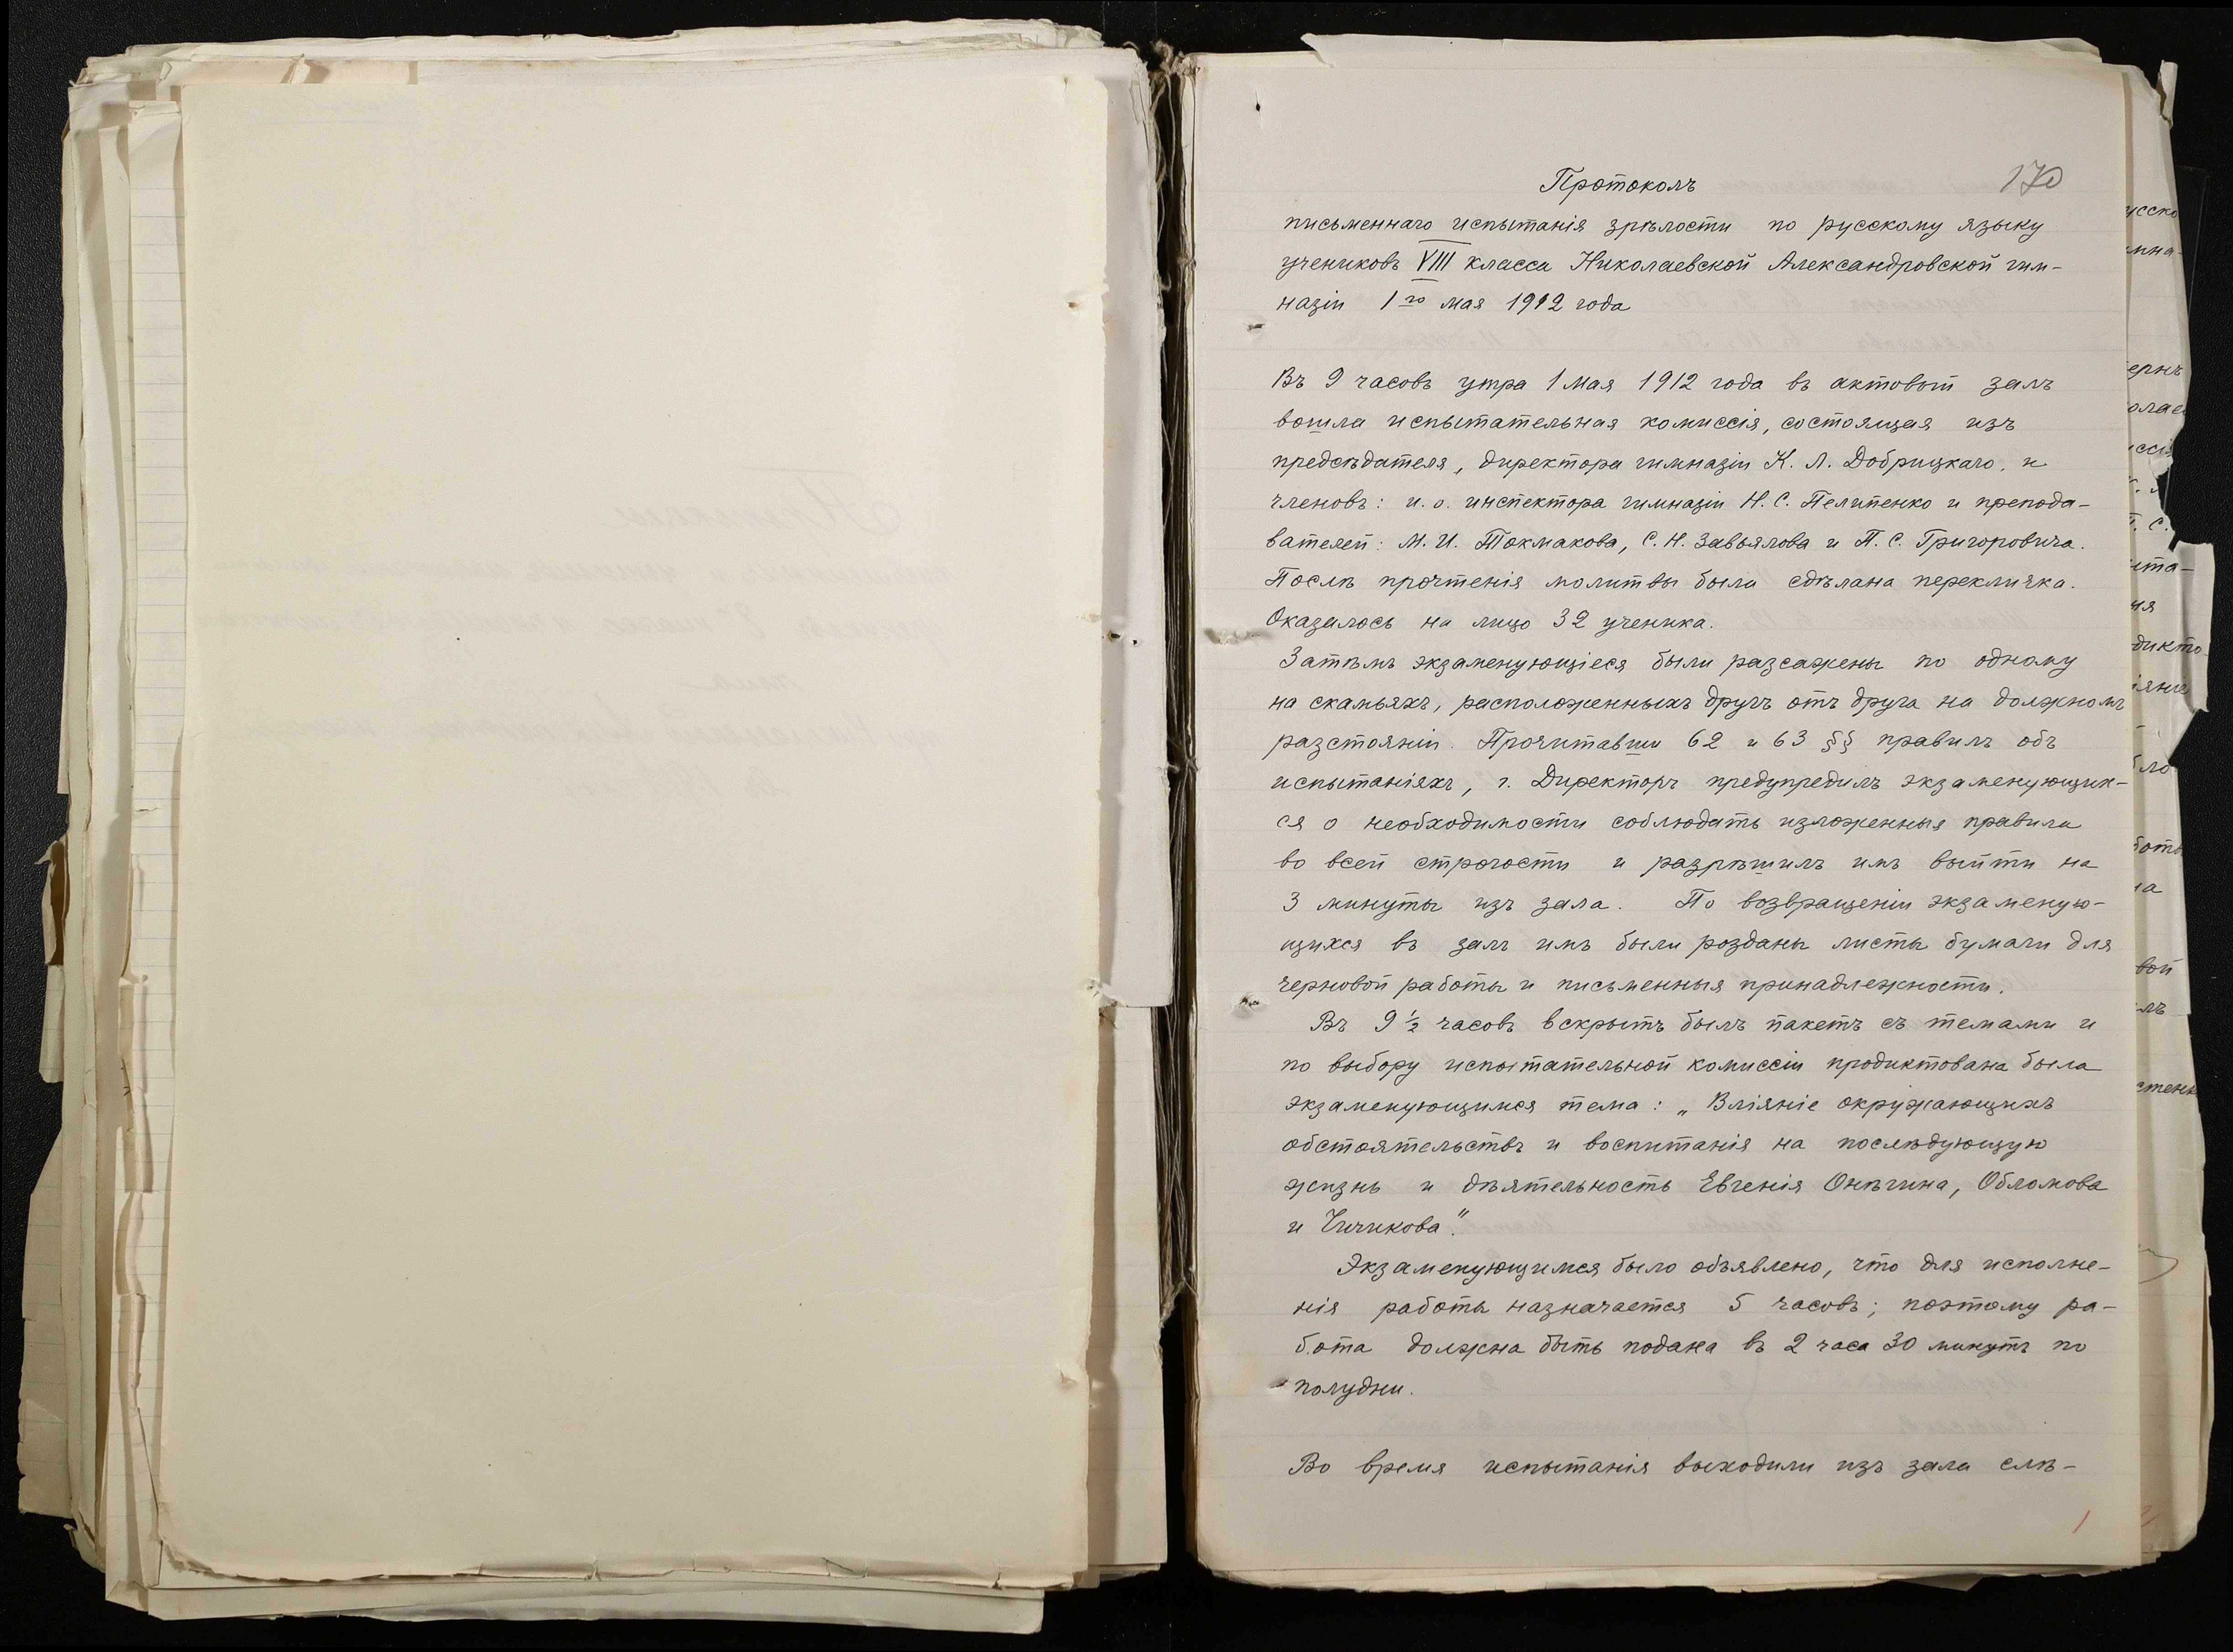 170
Протоколъ
письменнаго испытанія зрѣлости по русскому языку
учениковъ VIII класса Николаевской Александровской гим-
назіи 1го мая 1912 года
Въ 9 часовъ утра 1 мая 1912 года въ актовый залъ
вошла испытательная комиссія, состоящая изъ
предсѣдателя, директора гимназіи К. Л. Добрицкаго, и
членовъ: и. о. инспектора гимназіи Н. С. Пелипенко и препода-
вателей: М. И. Токмакова, С. Н. Завьялова и П. С. Григоровича.
Послѣ прочтенія молитвы была сдѣлана перекличка.
Оказалось на лицо 32 ученика.
Затѣмъ экзаменующіеся были разсажены по одному
на скамьяхъ, расположенныхъ другъ отъ друга на должномъ
разстояніи. Прочитавши 62 и 63 §§ правилъ объ
испытаніяхъ, г. Директоръ предупредилъ экзаменующих-
ся о необходимости соблюдать изложенныя правила
во всей строгости и разрѣшилъ имъ выйти на
3 минуты изъ зала. По возвращеніи экзаменую-
щихся въ залъ имъ были розданы листы бумаги для
черновой работы и письменныя принадлежности.
Въ 9 ½ часовъ вскрытъ былъ пакетъ съ темами и
по выбору испытательной комиссіи продиктована была
экзаменующимся тема: „Вліяніе окружающихъ
обстоятельствъ и воспитанія на послѣдующую
жизнь и дѣятельность Евгенія Онѣгина, Обломова
и Чичикова".
Экзаменующимся было объявлено, что для исполне-
нія работы назначается 5 часовъ; поэтому ра-
бота должна быть подана въ 2 часа 30 минутъ по
полудни.
Во время испытанія выходили изъ зала слѣ-
1